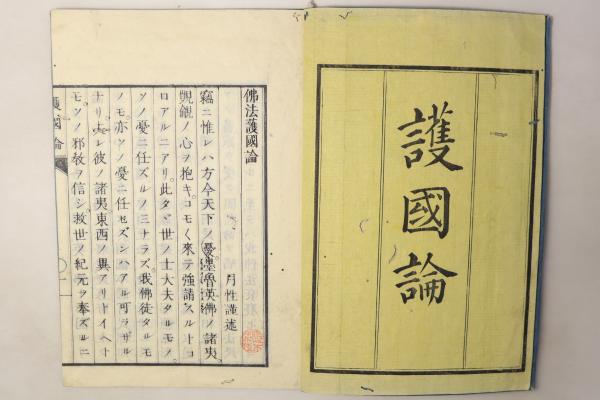 護國論
佛法護國論
月性謹述
竊ニ惟レハ方今天下ノ憂墨魯英佛ノ諸夷
覬覦ノ心ヲ抱キコモ〱來テ強請スルトコ
ロアルニアリ此タヾ世ノ士大夫タルモノ
ソノ憂ニ任ズルノミナラズ我佛徒タルモ
ノモ亦ソノ憂ニ任セズンハアル可ラザル
ナリ夫レ彼ノ諸夷東西ノ異アリトイヘト
モソノ邪敎ヲ信シ救世ノ紀元ヲ奉ズルニ
護國論
一